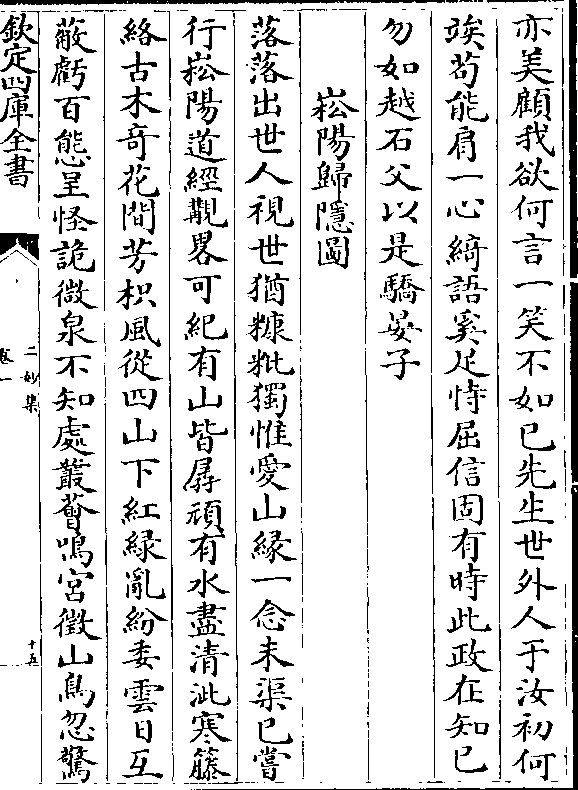 亦美顧我欲何言一笑不如已先生世外人于汝初何
竢苟能肩一心綺語奚足恃屈信固有時此政在知已
勿如越石父以是驕晏子
崧陽歸隱圖
落落出世人視世猶糠粃獨惟愛山縁一念未渠已嘗
行崧陽道經覯畧可紀有山皆孱頑有水盡清泚寒籐
絡古木奇花間芳枳風從四山下紅緑亂紛委雲日互
蔽虧百態呈怪詭微泉不知處叢薈鳴宮徵山鳥忽驚
欽定四庫全書
二妙集
卷一
十五